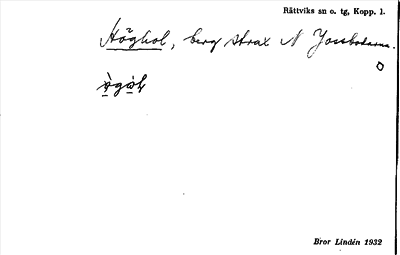 Rättviks sn o. tg, Kopp. l.
Höghol, berg strax N Jossbodarna.
Bror Lindén 1932